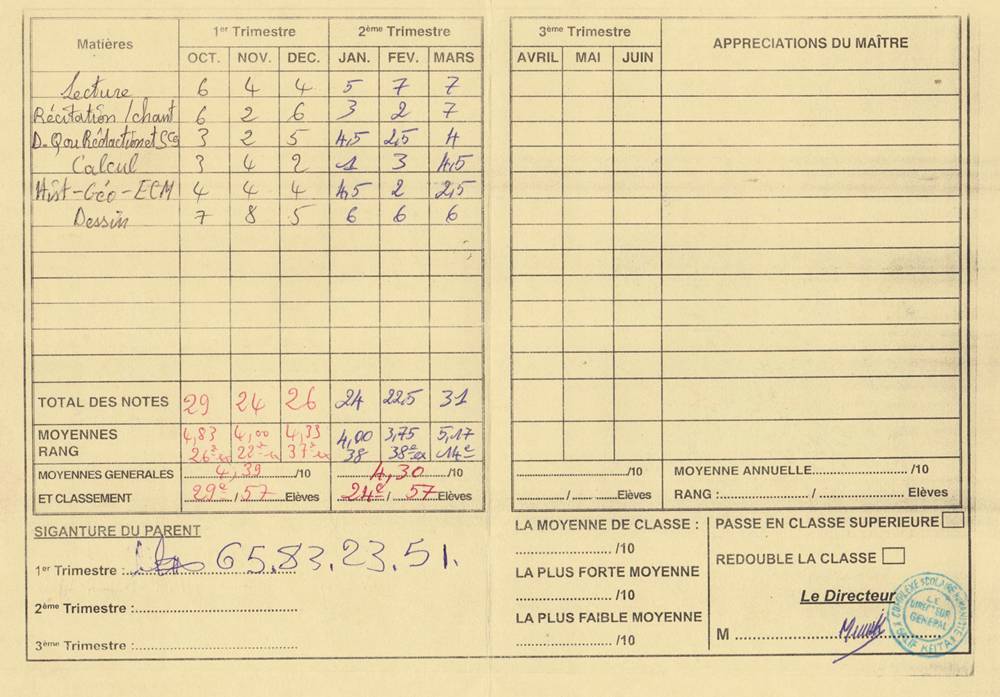 Matières 1er Trimestre 2ème Trimestre
OCT. NOV. DEC. JAN. FEV. MARS
Lecture 6 4 4 5 7 7
Récitation/chant 6 2 6 3 2 7
D.Q ou Rédaction et Sce 3 2 5 4,5 2,5 4
Calcul 3 4 2 1 3 4,5
Hist-Géo-ECM 4 4 4 4,5 2 2,5
Dessin 7 8 5 6 6 6
TOTAL DES NOTES 29 24 26 24 22,5 31
MOYENNES 4,83 4,00 4,33 4,00 3,75 5,17
RANG 26è ex 22è ex 37è ex 38 38è ex 14e
MOYENNES GENERALES 4,39 /10 4,30 /10
ET CLASSEMENT 29e / 57 Elèves 24e / 57 Elèves
SIGANTURE DU PARENT
1er Trimestre : 65.83.23.51.
2ème Trimestre :
3ème Trimestre :
3ème Trimestre APPRECIATIONS DU MAÎTRE
AVRIL MAI JUIN
/10 MOYENNE ANNUELLE /10
/ Elèves RANG : / Elèves
LA MOYENNE DE CLASSE :
/10
LA PLUS FORTE MOYENNE
/10
LA PLUS FAIBLE MOYENNE
/10
PASSE EN CLASSE SUPERIEURE
REDOUBLE LA CLASSE
Le Directeur
M
COMPLEXE SCOLAIRE
LE
DIRECTEUR
GENERAL
KEITA